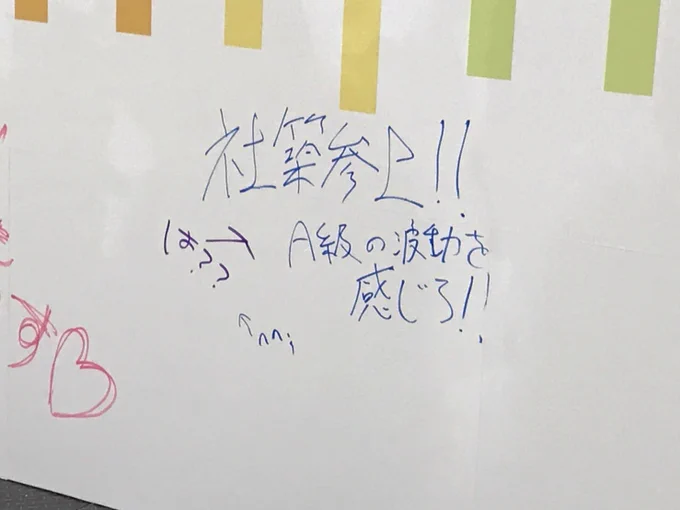 社築参上!!
は??→
A級の波動を
感じろ!!
↑^^;